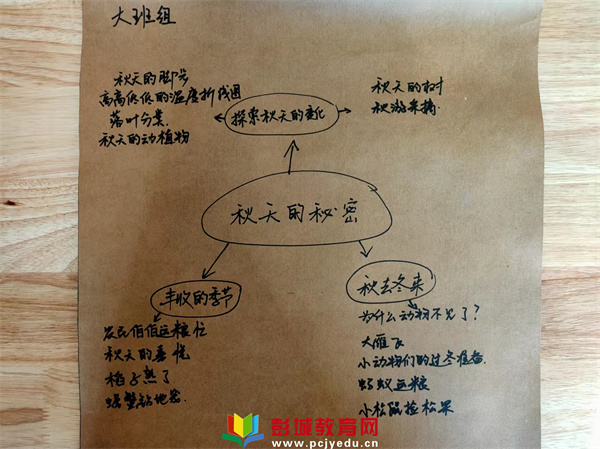 大班组
秋天的脚步
高高低低的温度折线图
落叶分类
秋天的动植物
探索秋天的变化
秋天的树
秋游采摘
秋天的秘密
丰收的季节
农民伯伯运粮忙
秋天的
稻子熟了
螃蟹钻地洞
秋去冬来
为什么动物不见了?
大雁飞
小动物们的过冬准备
蚂蚁运粮
小松鼠捡松果
彭城教育网
www.pcjyedu.cn